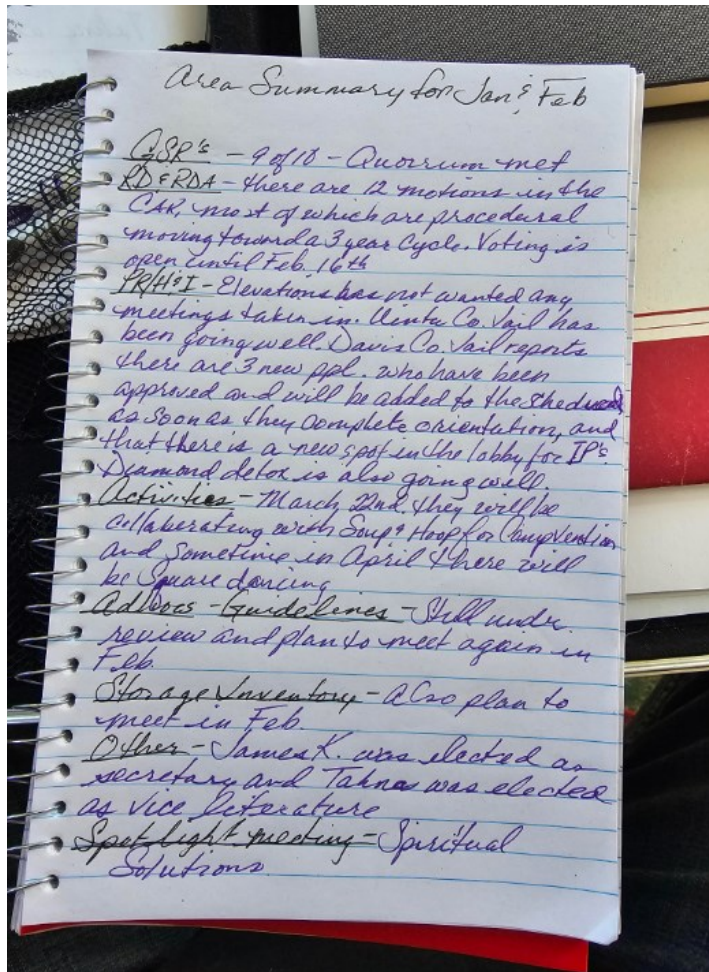 Area Summary for Jan & Feb
GSR's - 9 of 18 - Quorrum met
RD & RDA - there are 12 motions in the
CAR, most of which are procedural
moving toward a 3 year cycle. Voting is
open until Feb. 16th
PR/H&I - Elevations has not wanted any
meetings taken in. Uinta Co. Jail has
been going well. Davis Co. Jail reports
there are 3 new ppl. who have been
approved and will be added to the
as soon as they complete orientation, and
that there is a new spot in the lobby for IP's.
Diamond detox is also going well.
Activities - March 22nd they will be
collaberating with Soup & Hoop for CampVention
and sometime in April there will
be Square dancing
AdHocs - Guidelines - Still undr
review and plan to meet again in
Feb.
Storage Inventory - also plan to
meet in Feb.
Other - James K. was elected as
secretary and was elected
as vice literature
Spotlight meeting - Spiritual
Solutions